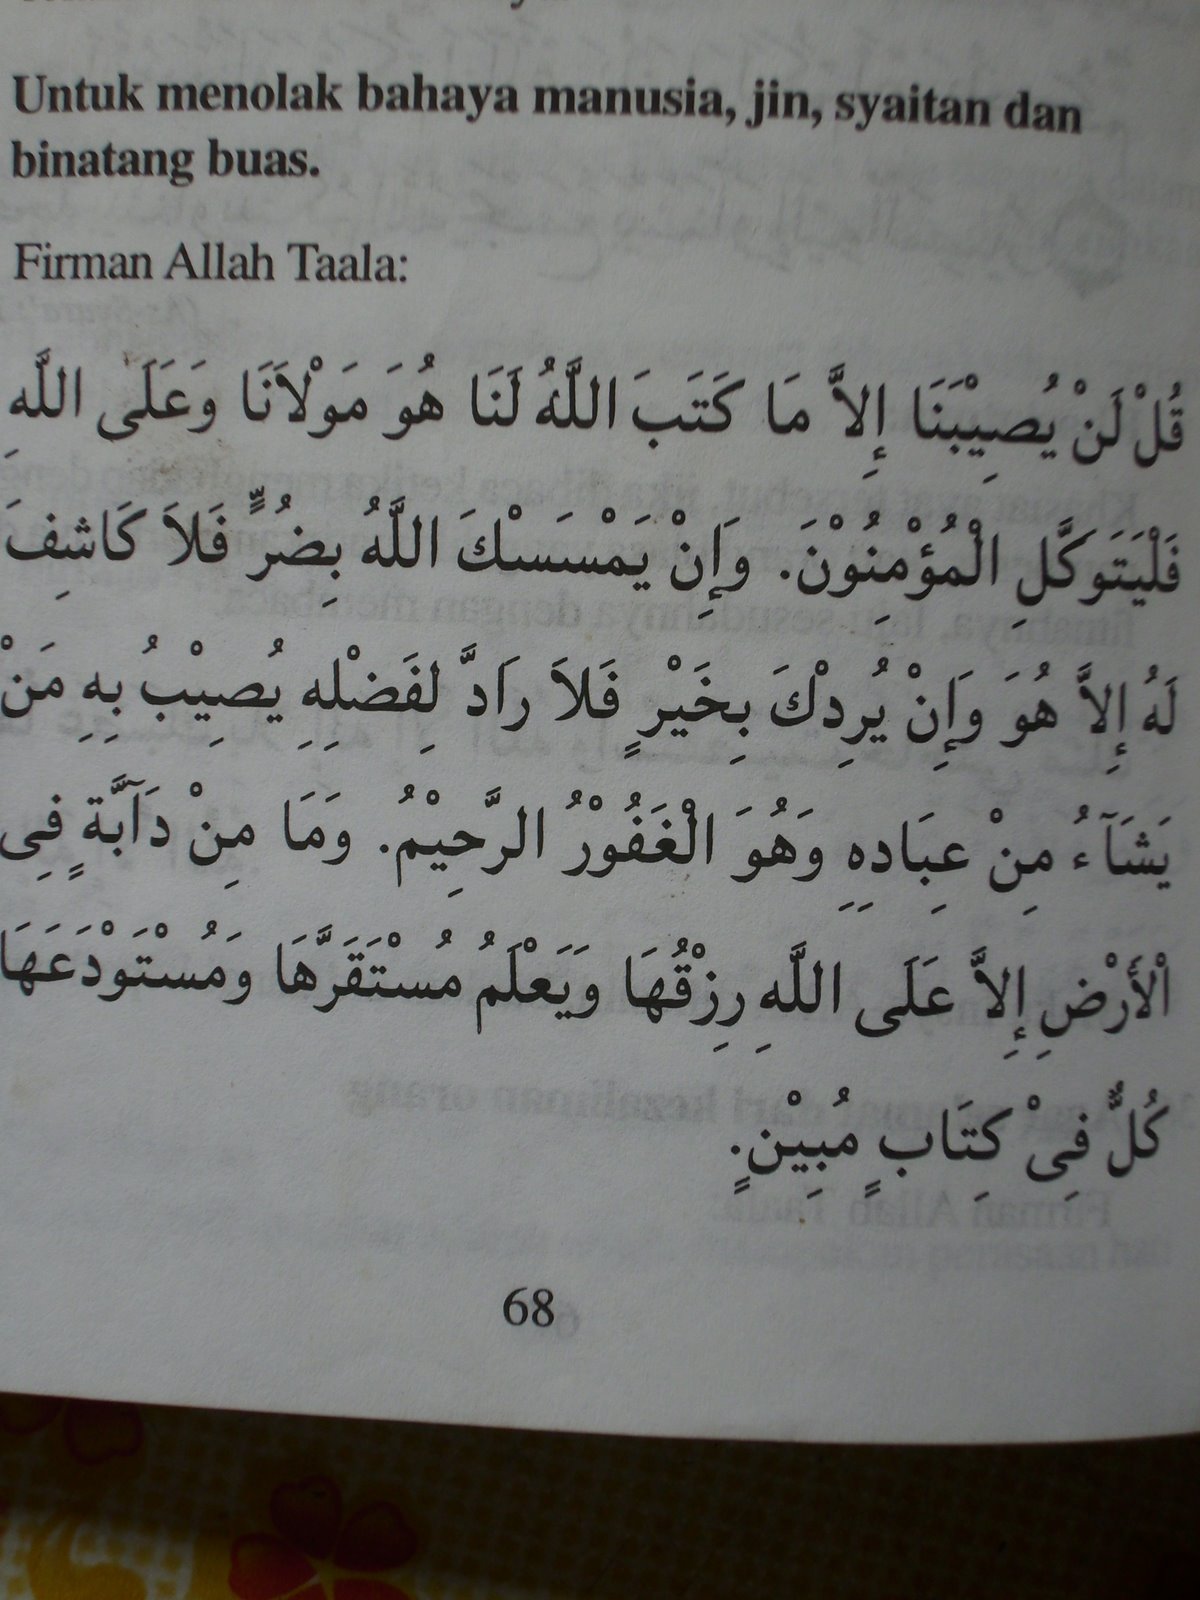 Untuk menolak bahaya manusia, jin, syaitan dan
binatang buas.
Firman Allah Taala:
قُلْ لَنْ يُصِيْبَنَا إِلاَّ مَا كَتَبَ اللَّهُ لَنَا هُوَ مَوْلاَنَا وَعَلَى اللَّهِ
فَلْيَتَوَكَّلِ الْمُؤْمِنُوْنَ. وَإِنْ يَمْسَسْكَ اللَّهُ بِضُرٍّ فَلاَ كَاشِفَ
لَهُ إِلاَّ هُوَ وَإِنْ يُرِدْكَ بِخَيْرٍ فَلاَ رَادَّ لِفَضْلِهِ يُصِيْبُ بِهِ مَنْ
يَشَآءُ مِنْ عِبَادِهِ وَهُوَ الْغَفُوْرُ الرَّحِيْمُ. وَمَا مِنْ دَآبَّةٍ فِى
اْلأَرْضِ إِلاَّ عَلَى اللَّهِ رِزْقُهَا وَيَعْلَمُ مُسْتَقَرَّهَا وَمُسْتَوْدَعَهَا
كُلٌّ فِىْ كِتَابٍ مُبِيْنٍ.
68